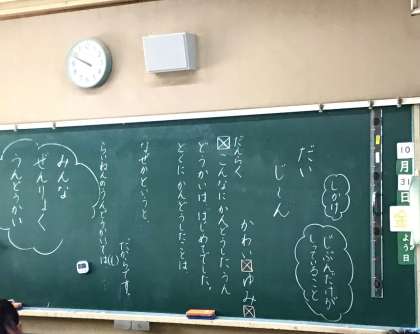 10月31日
金よう日
だい
じ〜ん
しかけ
じぶんだけが
していること
かわい☒ゆみ☒
だんらく
☒こんなにかんどうした、うん
どうかいは、はじめてでした。
とくに、かんどうしたことは
なぜかというと、
だからです。
らいねんのうんどうかいでは(も)、…
みんな
ぜんりょく
うんどうかい